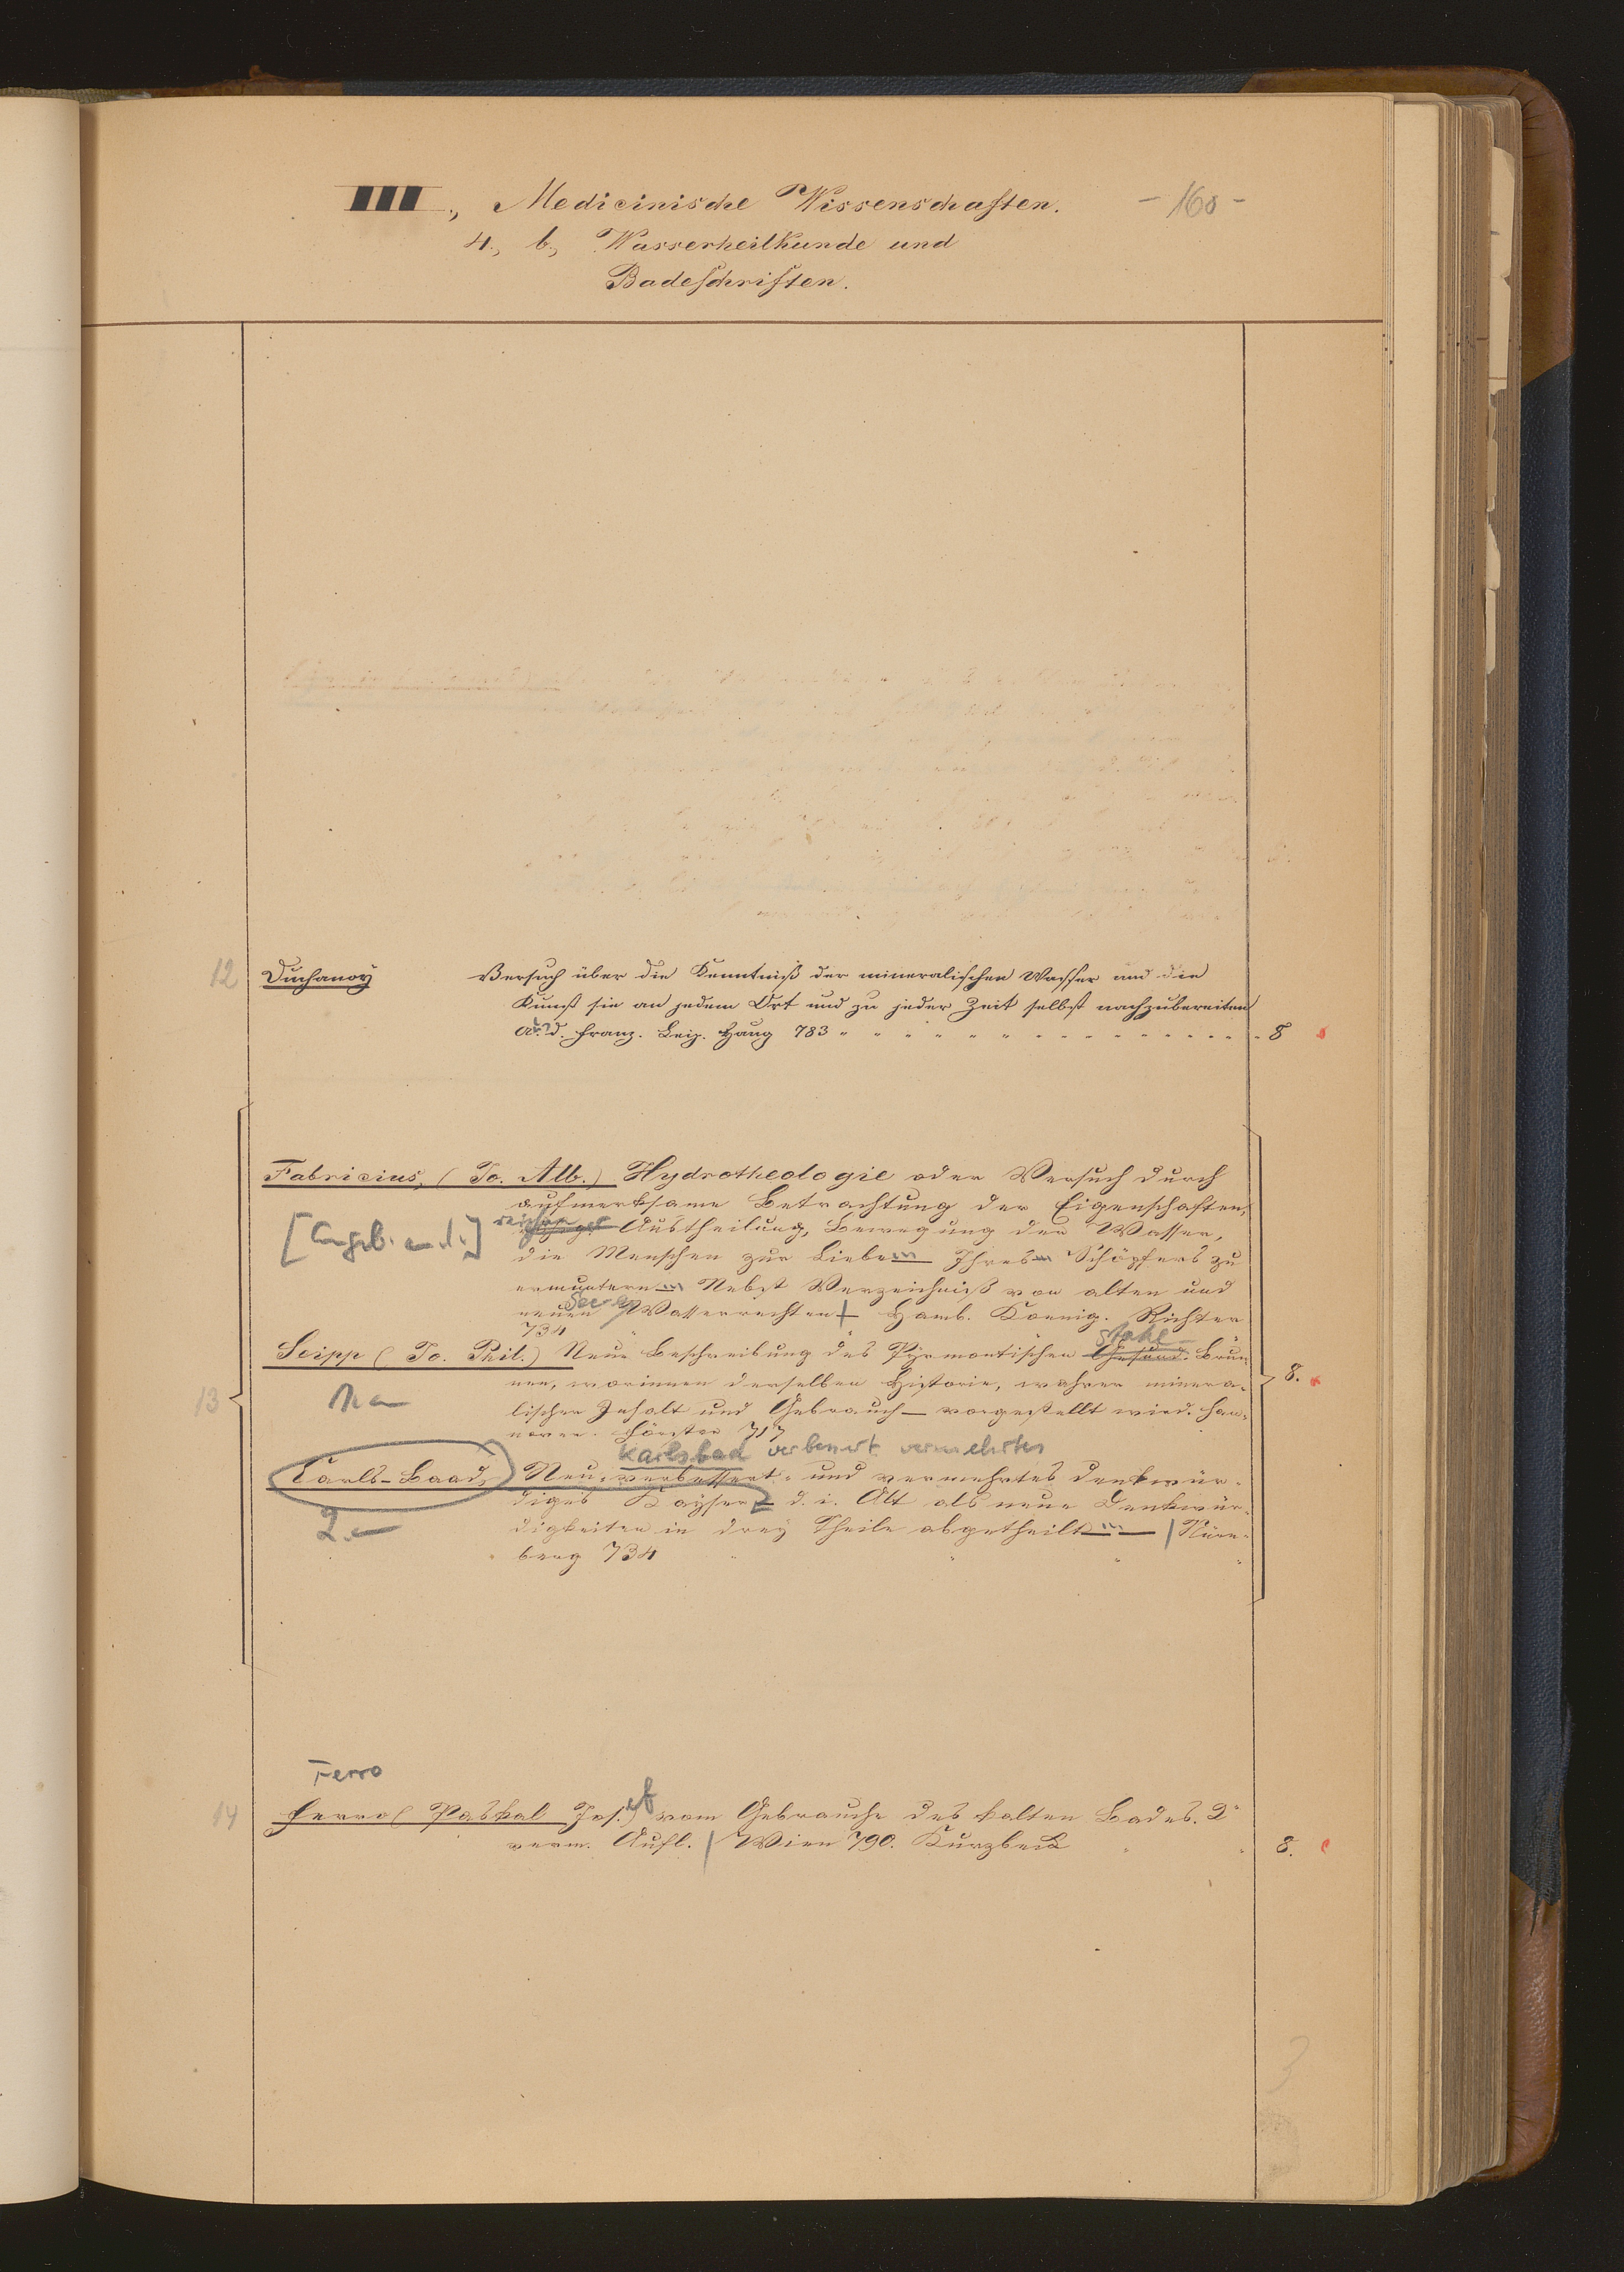 III., Medicinische Wissenschaften. - 160 -
4., b., Wasserheilkunde und
Badeschriften.
12 Duchanoy Versuch über die Kenntniß der mineralischen Wasser und die
Kunst sie an jedem Ort und zu jeder Zeit selbst nachzubereiten
A. d. Franz. Leiz. Haug 783 8
Fabricius, (Jo. Alb.) Hydrotheologie oder Versuch durch
aufmerksame Betrachtung der Eigenschaften,
Austheilung, Bewegung der Wasser,
die Menschen zur Liebe Ihres Schöpfers zu
ermuntern Nebst Verzeichniß von alten und
neuen See- Wasserrechten Hamb. Koenig. Richter
734
Stahl
Seipp (Jo. Phil.) Neue Beschreibung des Pyrmontischen Gesund. Brun-
nen, worinnen derselben Historie, wahrer minera- 8.
13 lischer Inhalt und Gebrauch — vorgestellt wird. Han-
nover. Förster 717
Karlsbad verbessert vermehrtes
Carls-Baad, Neu-verbessert- und vermehrtes denkwür-
diges Kayser d. i. Alt als neue Denkwür-
2. digkeiten in drey Theile abgetheilt — / Nürn-
berg 734
Ferro
14 Ferro (Paskal Jos.) vom Gebrauche des kalten Bades. 2
verm. Aufl. / Wien 790. Kurzbek 8.
3